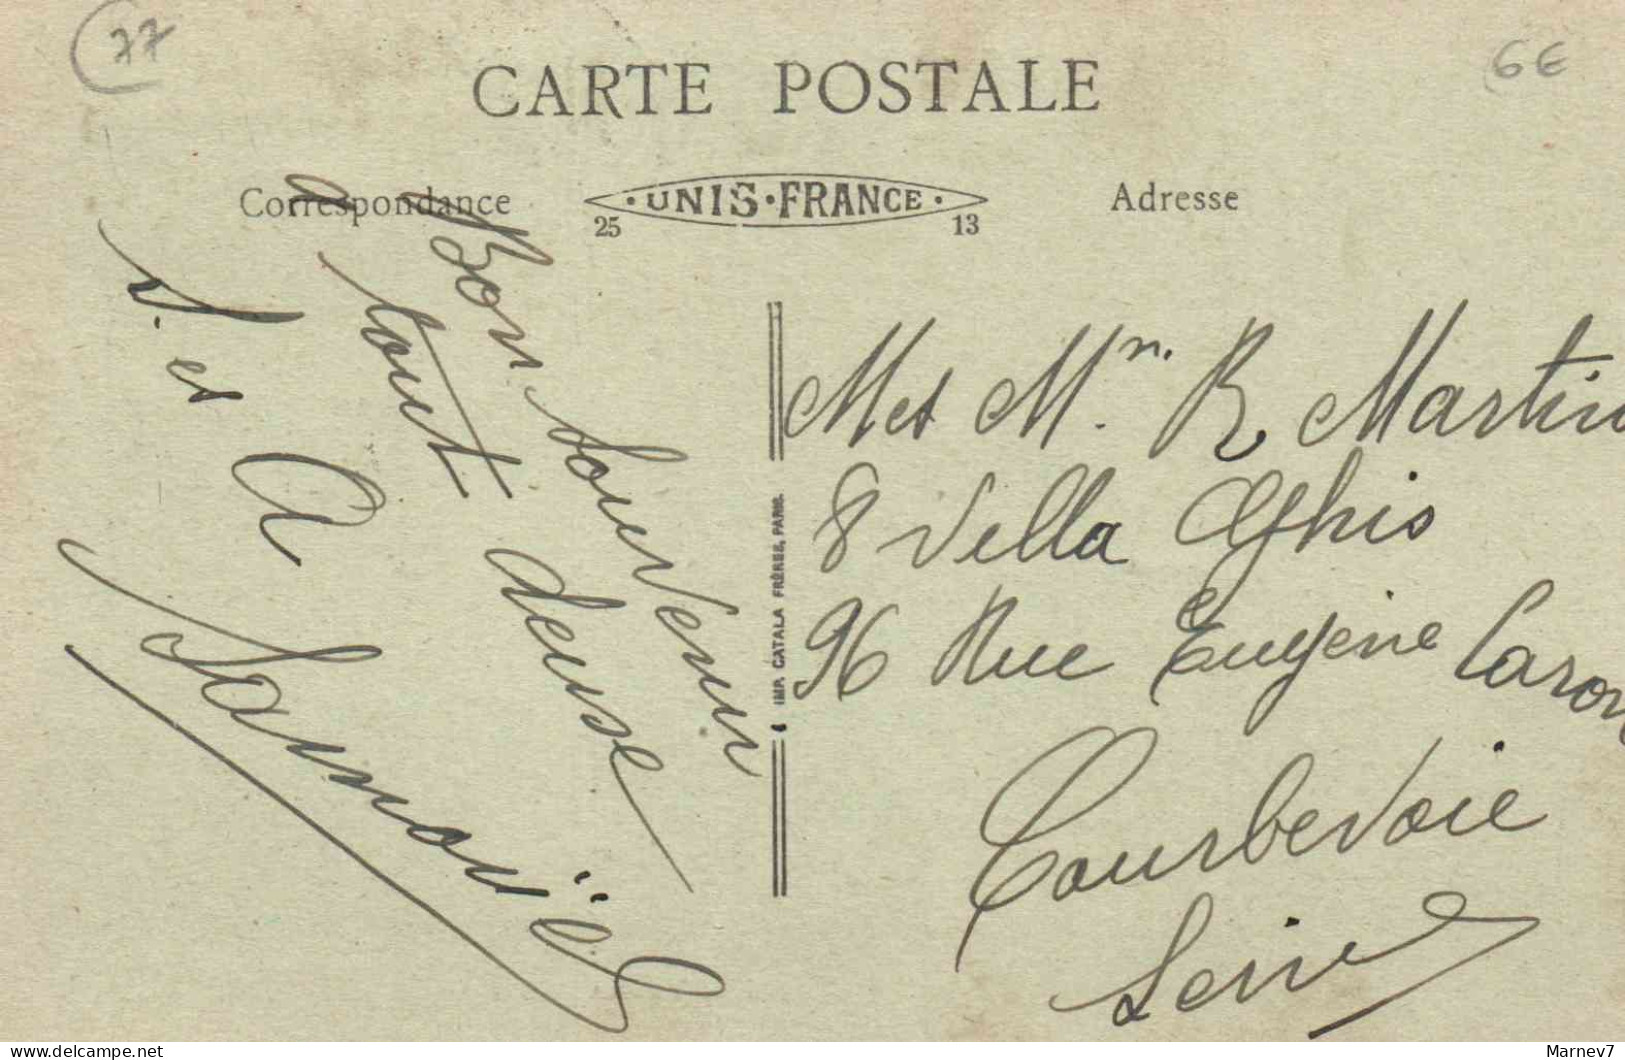 77
6€
CARTE POSTALE
Correspondance
UNIS·FRANCE
25
13
Adresse
Bon Souvenir
a tout deuse
S. et A
Samouël
IMP. CATALA FRÈRES, PARIS.
M et Mm. R Martin
8 Villa Ghis
96 Rue Eugène Caron
Courbevoie
Seine
Marnev7